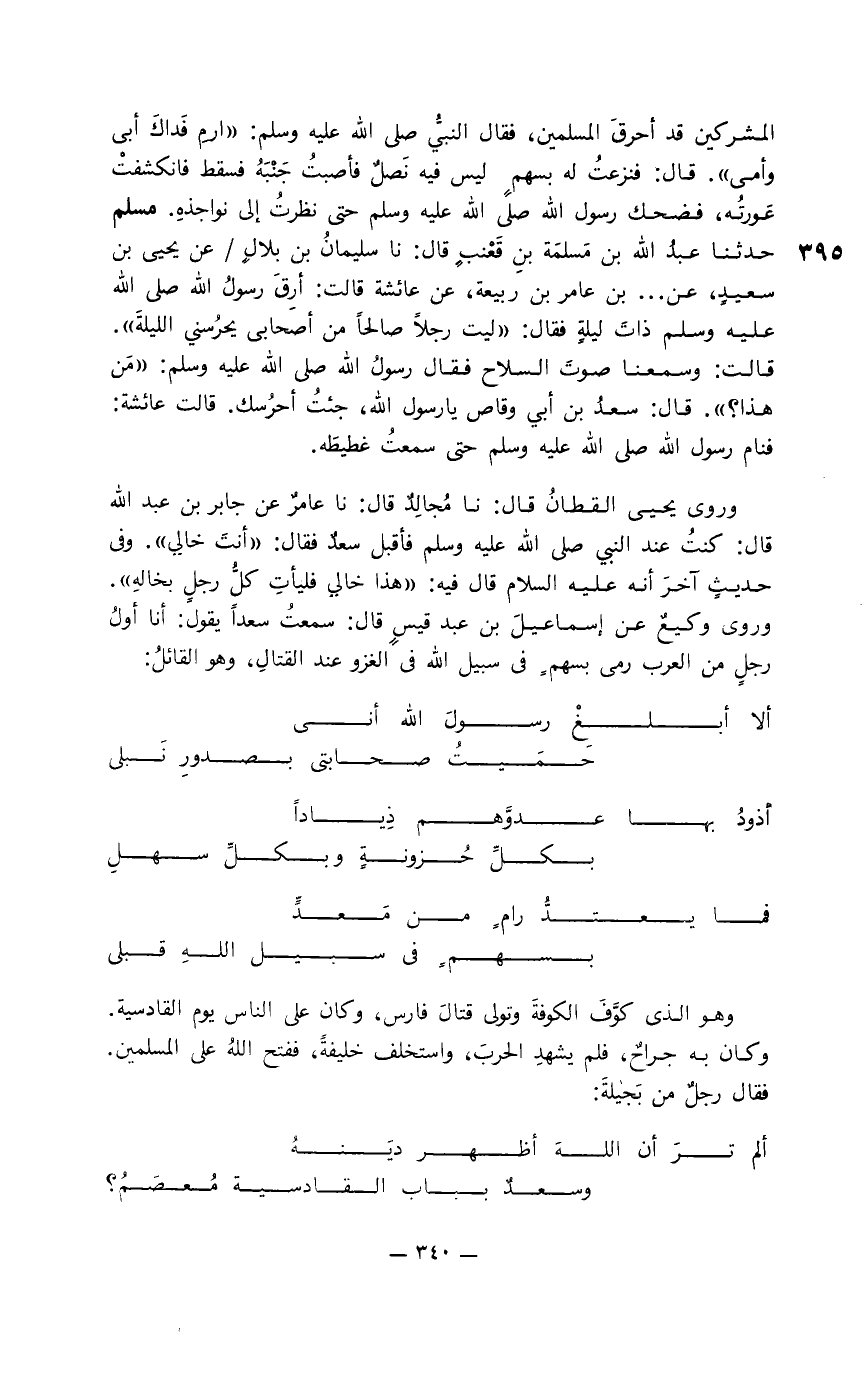 المشركين قد أحرقَ المسلمين، فقال النبيُّ صلى الله عليه وسلم: «ارمِ فَداكَ أبى
وأمى». قال: فنزعتُ له بسهمٍ ليس فيه نَصلٌ فأصبتُ جَنْبَهُ فسقط فانكشفتْ
عَورتُه، فضحك رسول الله صلى الله عليه وسلم حتى نظرتُ إلى نواجذهِ. مسلم
٣٩٥ حدثنا عبدُ الله بن مَسلمَة بنِ قَعْنبٍ قال: نا سليمانُ بن بلالٍ / عن يحيى بن
سعيدٍ، عن... بن عامر بن ربيعة، عن عائشة قالت: أرِقَ رسولُ الله صلى الله
عليه وسلم ذاتَ ليلةٍ فقال: «ليت رجلاً صالحاً من أصحابى يحرُسني الليلةَ».
قالت: وسمعنا صوتَ السلاح فقال رسولُ الله صلى الله عليه وسلم: «مَن
هذا؟». قال: سعدُ بن أبي وقاص يارسول الله، جئتُ أحرُسك. قالت عائشة:
فنام رسول الله صلى الله عليه وسلم حتى سمعتُ غطيطَه.
وروى يحيى القطانُ قال: نا مُجالِدٌ قال: نا عامرٌ عن جابر بن عبد الله
قال: كنتُ عند النبي صلى الله عليه وسلم فأقبل سعدٌ فقال: «أنتَ خالي». وفى
حديثٍ آخرَ أنه عليه السلام قال فيه: «هذا خالي فليأتِ كلُّ رجلٍ بخالهِ».
وروى وكيعٌ عن إسماعيلَ بن عبد قيسٍ قال: سمعتُ سعداً يقول: أنا أولُ
رجلٍ من العرب رمى بسهمٍ فى سبيل الله فى الغزو عند القتالِ، وهو القائلُ:
ألا أبلغْ رسولَ الله أنى
حَمَيتُ صحابتى بصدورِ نَبلى
أذودُ بها عدوَّهم ذِياداً
بكلِّ حُزونةٍ وبكلِّ سهلِ
فما يعتدُّ رامٍ من مَعدٍّ
بسهمٍ فى سبيل اللهِ قبلى
وهو الذى كوَّفَ الكوفةَ وتولى قتالَ فارس، وكان على الناس يوم القادسية.
وكان به جراحٌ، فلم يشهدِ الحربَ، واستخلف خليفةً، ففتح اللهُ على المسلمين.
فقال رجلٌ من بَجيلةَ:
ألم ترَ أن اللهَ أظهر ديَنهُ
وسعدٌ بباب القادسية مُعصَمُ؟
— ٣٤٠ —